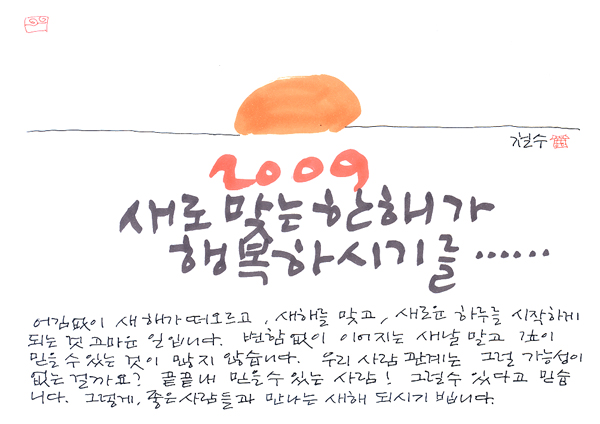 철수
2009
새로 맞는 한해가
행복하시기를 ......
어김없이 새 해가 떠오르고, 새해를 맞고, 새로운 하루를 시작하게
되는 것 고마운 일입니다. 변함없이 이어지는 새날 말고 깊이
믿을 수 있는 것이 많지 않습니다. 우리 사람 관계는 그럴 가능성이
없는 걸까요? 끝끝내 믿을 수 있는 사람! 그럴 수 있다고 믿습
니다. 그렇게, 좋은 사람들과 만나는 새해 되시기 빕니다.